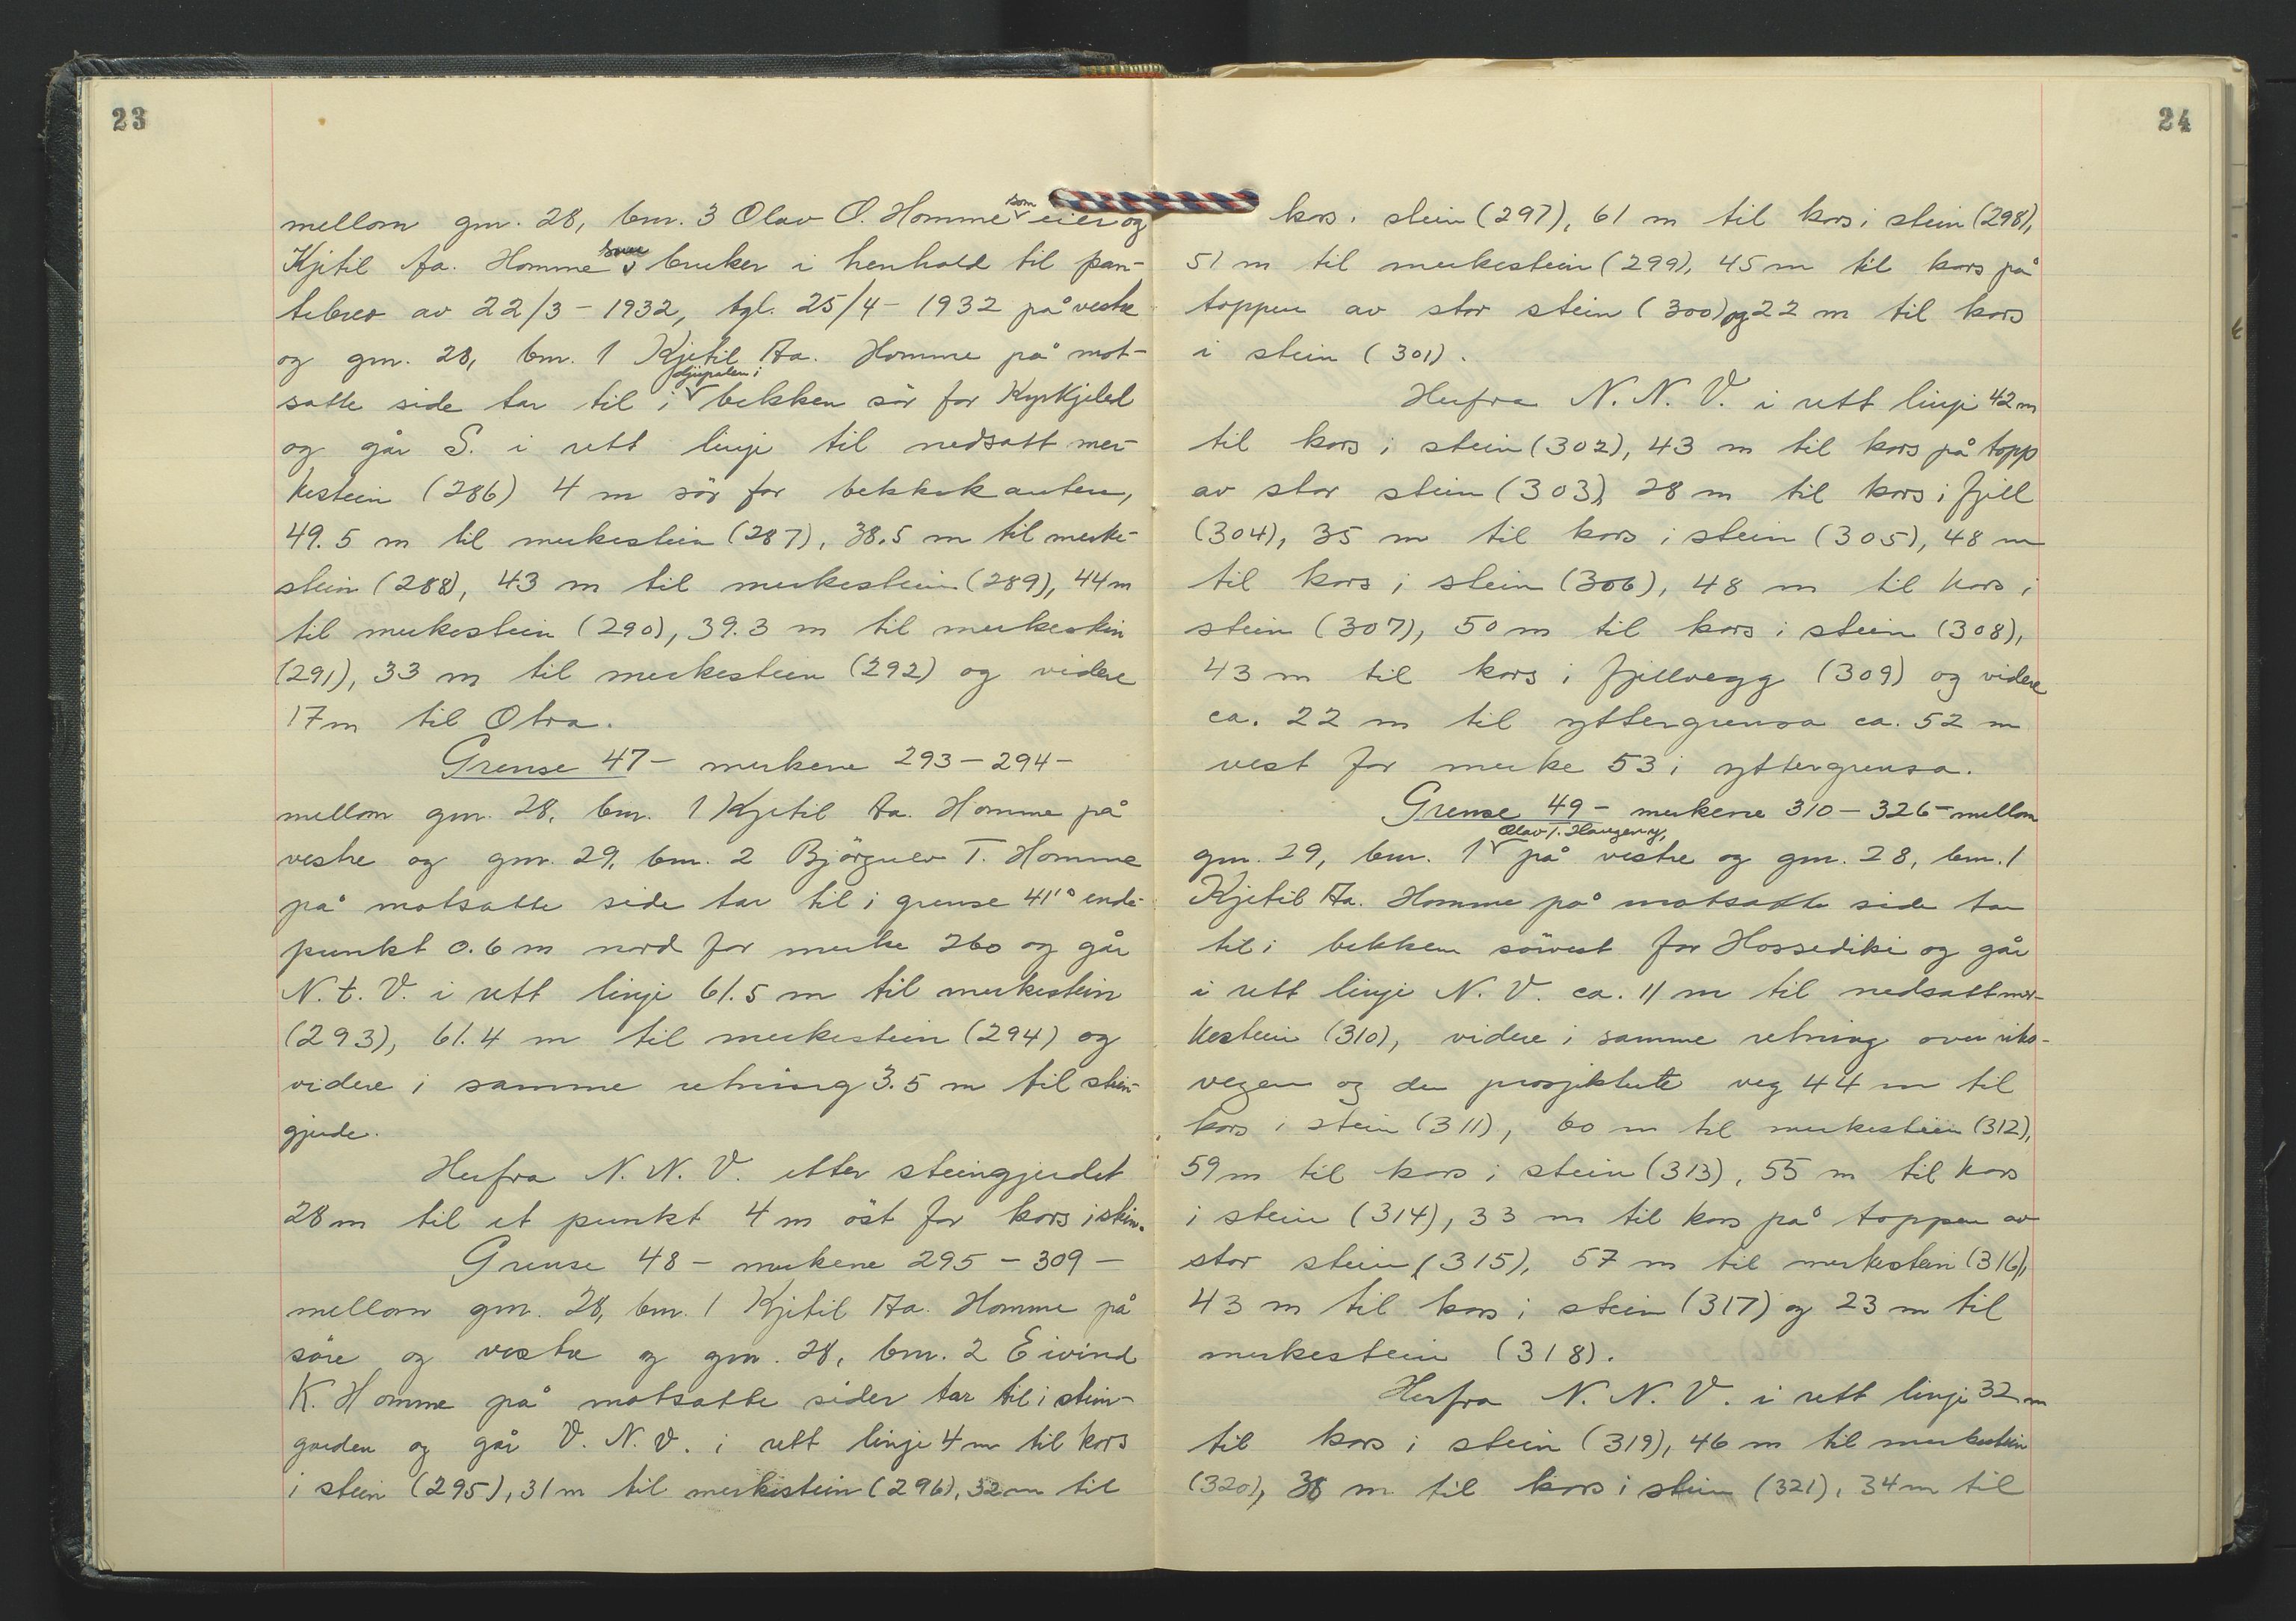 23
mellom gnr. 28, bnr. 3 Olav O. Homme som eier og
Kjetil Aa. Homme som bruker i henhold til pan-
tebrev av 22/3 - 1932, tgl. 25/4 - 1932 på vestre
og gnr. 28, bnr. 1 Kjetil Aa. Homme på mot-
satte side tar til i djupålen i bekken sör for Kyrkjeled
og går S. i rett linje til nedsatt mer-
kestein (286) 4 m sör for bekkekanten,
49.5 m til merkestein (287), 38.5 m til merke-
stein (288), 43 m til merkestein (289), 44 m
til merkestein (290), 39.3 m til merkestein
(291), 33 m til merkestein (292) og videre
17 m til Otra.
Grense 47 - merkene 293 - 294 -
mellom gnr. 28, bnr. 1 Kjetil Aa. Homme på
vestre og gnr. 29, bnr. 2 Björgulv T. Homme
på motsatte side tar til i grense 41's ende-
punkt 0.6 m nord for merke 260 og går
N. t. V. i rett linje 61.5 m til merkestein
(293), 61.4 m til merkestein (294) og
videre i samme retning 3.5 m til stein-
gjerde.
Herfra N. N. V. etter steingjerdet
28 m til et punkt 4 m öst for kors i stein.
Grense 48 - merkene 295 - 309 -
mellom gnr. 28, bnr. 1 Kjetil Aa. Homme på
söre og vestre og gnr. 28, bnr. 2 Eivind
K. Homme på motsatte sider tar til i stein-
garden og går V. N. V. i rett linje 4 m til kors
i stein (295), 31 m til merkestein (296), 32 m til
24
kors i stein (297), 61 m til kors i stein (298),
51 m til merkestein (299), 45 m til kors på
toppen av stor stein (300) og 22 m til kors
i stein (301).
Herfra N. N. V. i rett linje 42 m
til kors i stein (302), 43 m til kors på topp
av stor stein (303), 28 m til kors i fjell
(304), 35 m til kors i stein (305), 48 m
til kors i stein (306), 48 m til kors i
stein (307), 50 m til kors i stein (308),
43 m til kors i fjellvegg (309) og videre
ca. 22 m til yttergrensa ca. 52 m
vest for merke 53 i yttergrensa.
Grense 49 - merkene 310 - 326 - mellom
gnr. 29, bnr. 1 Olav T. Haugen på vestre og gnr. 28, bnr. 1
Kjetil Aa. Homme på motsatte side tar
til i bekken sörvest for Hossediki og går
i rett linje N. V. ca. 11 m til nedsatt mer-
kestein (310), videre i samme retning over riks-
vegen og den prosjekterte veg 44 m til
kors i stein (311), 60 m til merkestein (312),
59 m til kors i stein (313), 55 m til kors
i stein (314), 33 m til kors på toppen av
stor stein (315), 57 m til merkestein (316),
43 m til kors i stein (317) og 23 m til
merkestein (318).
Herfra N. N. V. i rett linje 32 m
til kors i stein (319), 46 m til merkestein
(320), 38 m til kors i stein (321), 34 m til